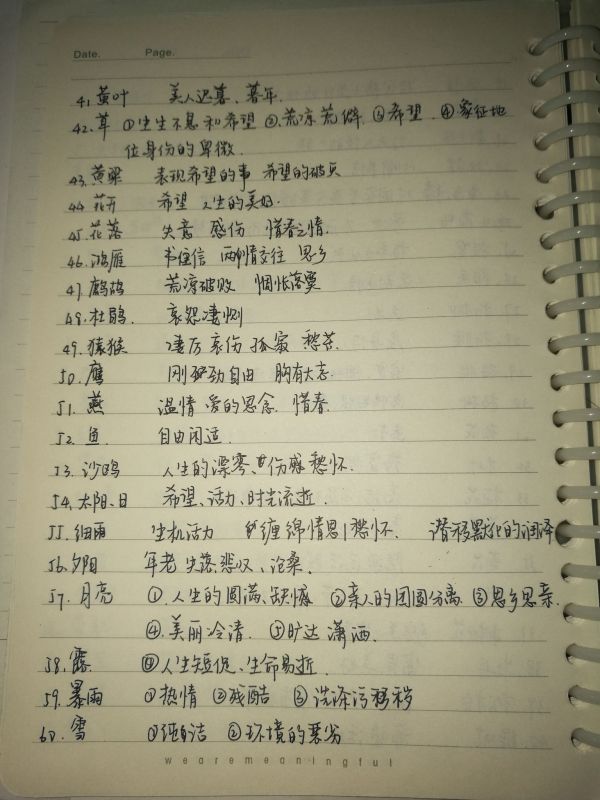 Date. Page.
41. 黄叶 美人迟暮、暮年.
42. 草 ①生生不息和希望 ②荒凉荒僻. ③希望. ④象征地
位身份的卑微.
43. 黄粱 表现希望的事 希望的破灭
44. 花开 希望 人生的美好.
45. 花落 失意 感伤 惜春之情.
46. 鸿雁 书信 两情交往 思乡
47. 鹧鸪 荒凉破败 惆怅落寞
48. 杜鹃. 哀怨凄恻
49. 猿猴 凄厉 哀伤 孤寂 愁苦.
50. 鹰 刚劲自由 胸有大志.
51. 燕 温情 爱的思念. 惜春.
52. 鱼 自由闲适.
53. 沙鸥 人生的漂零、伤感愁怀.
54. 太阳、日 希望、活力、时光流逝.
55. 细雨 生机活力 缠绵情思 愁怀. 潜移默化的润泽
56. 夕阳 年老 失落 悲叹、沧桑.
57. 月亮 ①. 人生的圆满、缺憾 ②亲人的团圆分离 ③思乡思亲.
④. 美丽冷清. ⑤旷达 潇洒.
58. 露 人生短促、生命易逝.
59. 暴雨 ①热情 ②残酷 ③洗涤污秽
60. 雪 ①纯洁 ②环境的恶劣
wearemeaningful